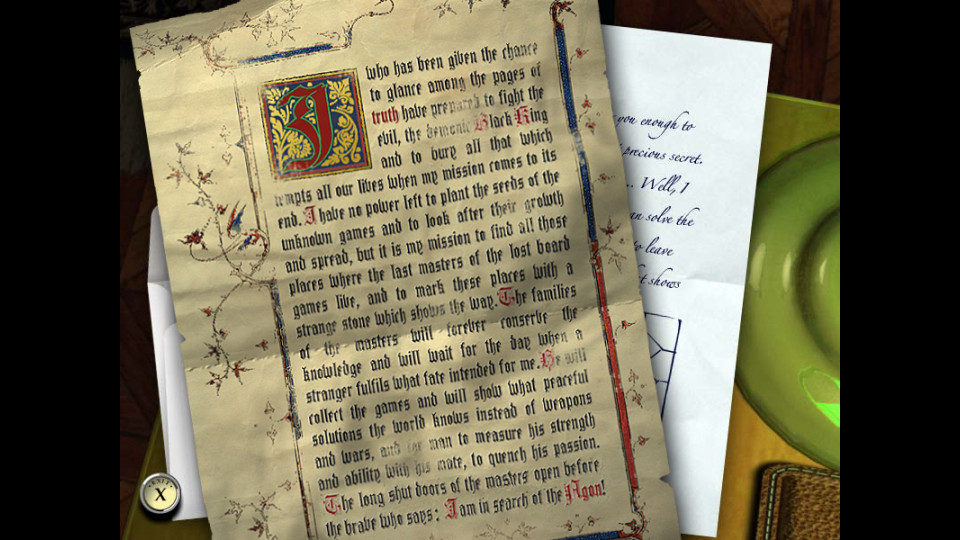 I who has been given the chance
to glance among the pages of
truth have prepared to fight the
evil, the demonic Black King
and to bury all that which
tempts all our lives when my mission comes to its
end. I have no power left to plant the seeds of the
unknown games and to look after their growth
and spread, but it is my mission to find all those
places where the last masters of the lost board
games live, and to mark these places with a
strange stone which shows the way. The families
of the masters will forever conserve the
knowledge and will wait for the day when a
stranger fulfils what fate intended for me. He will
collect the games and will show what peaceful
solutions the world knows instead of weapons
and wars, and for man to measure his strength
and ability with his mate, to quench his passion.
The long shut doors of the masters open before
the brave who says: I am in search of the Agon!
you enough to
precious secret.
... Well, I
can solve the
to leave
t shows
X